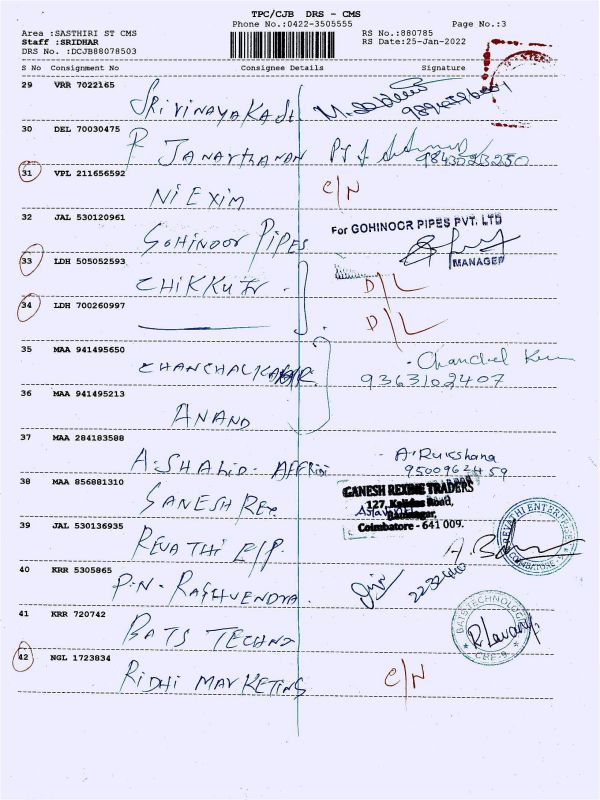 TPC/CJB DRS - CMS
Phone No.:0422-3505555 Page No.:3
Area :SASTHIRI ST CMS RS No.:880785
Staff :SRIDHAR RS Date:25-Jan-2022
DRS No. :DCJB88078503
S No Consignment No Consignee Details Signature
29 VRR 7022165
SRI VINAYAKA
30 DEL 70030475
R JANARTHANAN 9843023250
31 VPL 211656592
NI EXIM C/N
32 JAL 530120961
GOHINOOR PIPES For GOHINOOR PIPES PVT. LTD
MANAGER
33 LDH 505052593
CHIKKU D/L
34 LDH 700260997
D/L
35 MAA 941495650
CHANCHALKABIR 9363102407
36 MAA 941495213
ANAND
37 MAA 284183588
A. SHALID. A. Rukshana
9500962459
38 MAA 856881310
GANESH REX GANESH REXINE TRADERS
127, Road,
Coimbatore - 641 009.
39 JAL 530136935
REVATHI E/P. REVATHI ENTERPRISES
40 KRR 5305865
P.N. RAGHVENDRA
41 KRR 720742
BATS TECHNO BATS TECHNOLOGI
42 NGL 1723834
RIDHI MARKETING C/N